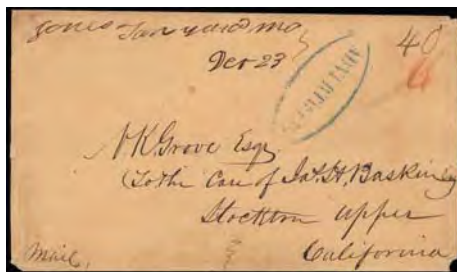 Jones Tanyard Mo
Dec 23
40
ADVERTISED
A K Grove Esq
(To the Care of Jas. H. Baskin Esq
Stockton Upper
California
Mail,